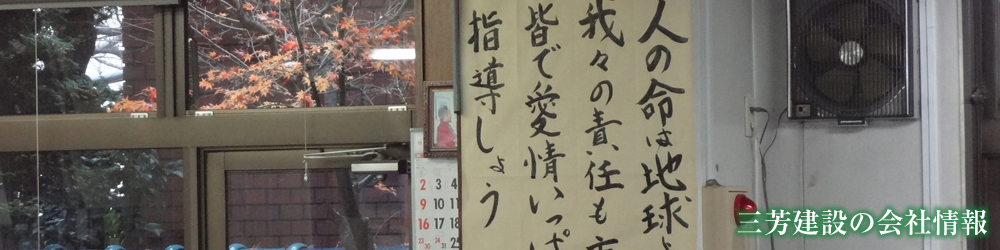 人の命は地球
我々の責任も
皆で愛情いっぱ
指導しょう
2 3 4
9 10 11
16 17 18
三芳建設の会社情報